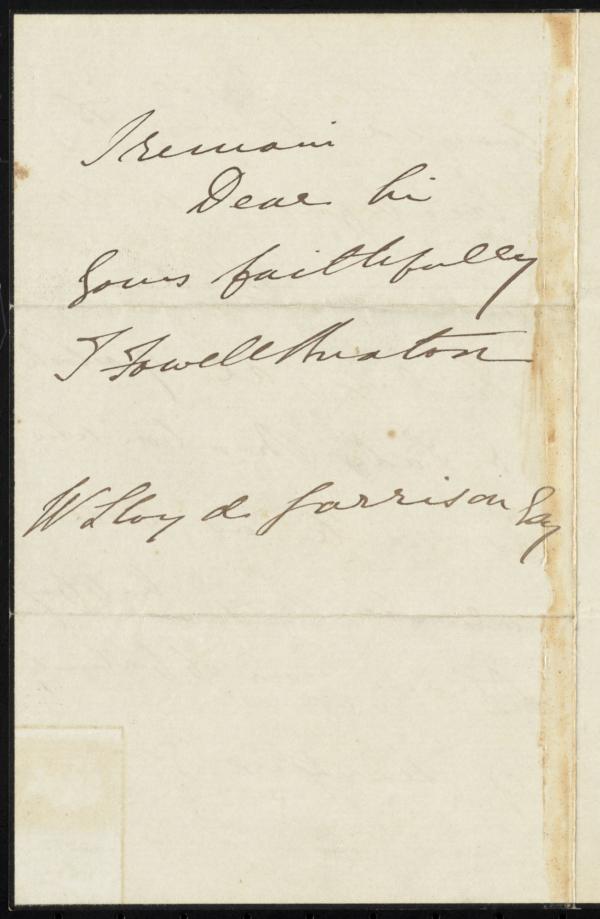 I remain
Dear Sir
Yours faithfully
T Fowell Buxton
W Lloyd Garrison Esq